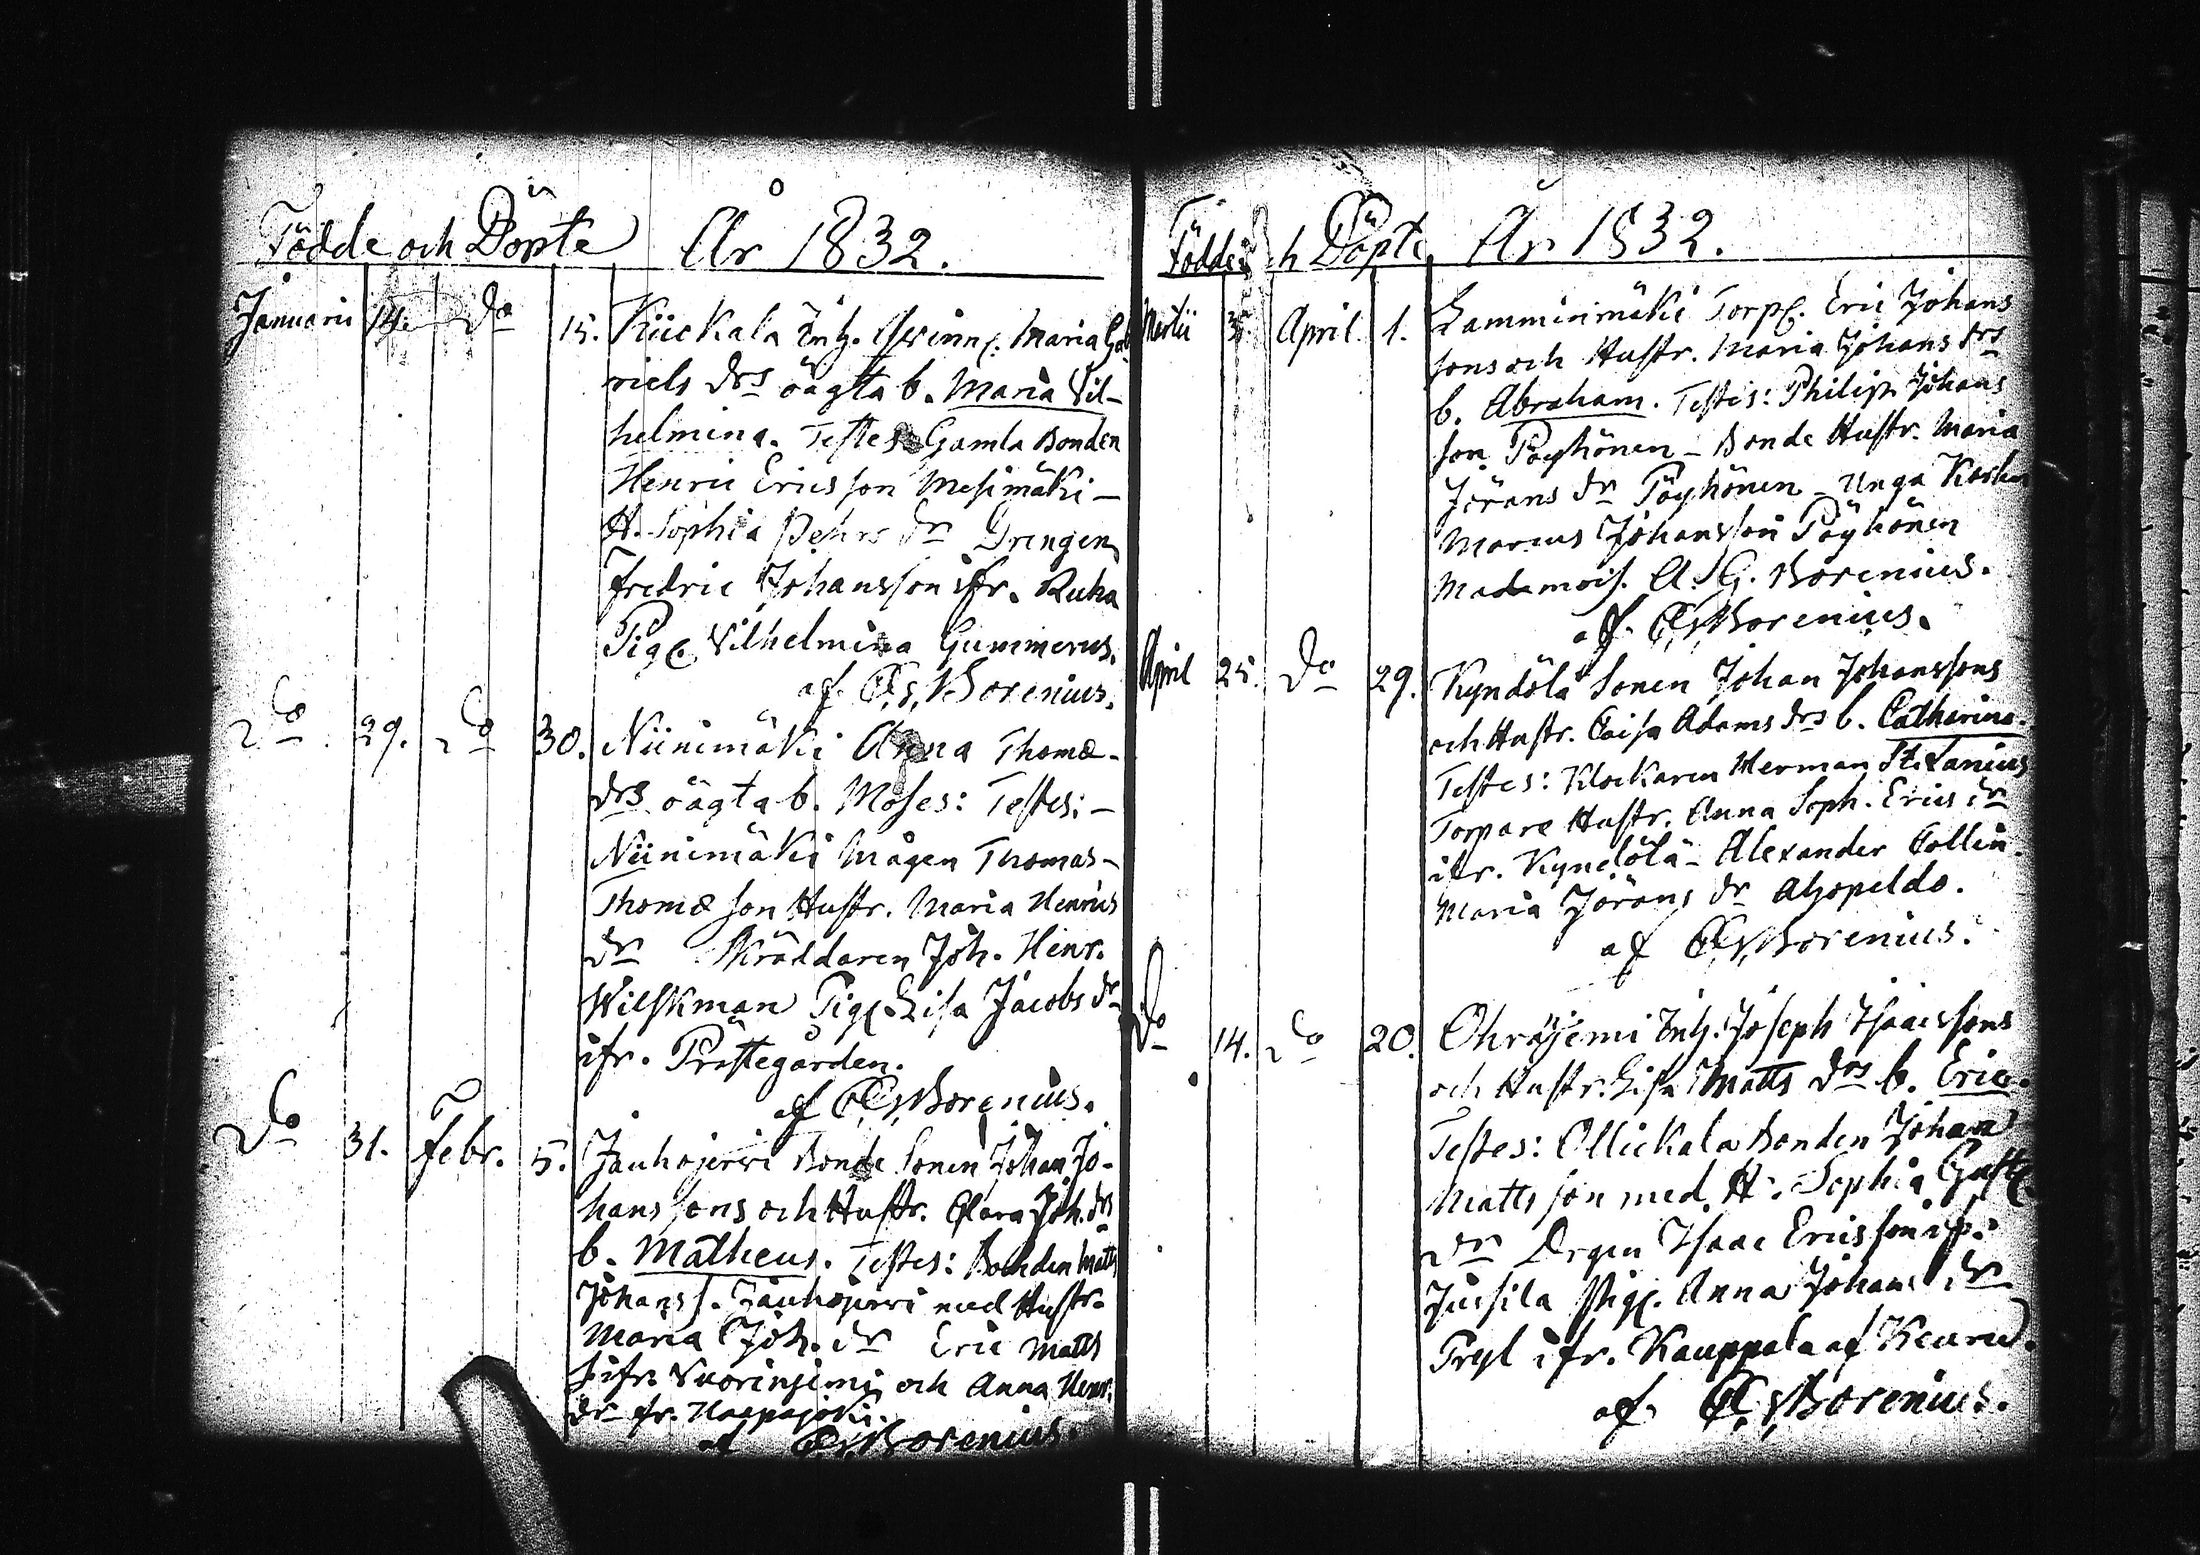 Födde och Döpte År 1832.
Januarii 14. Do 15. Kiickala Inh. Qvinn. Maria Gab
riels drs oägta b. Maria Vil-
helmina. Testes Gamla Bonden
Henric Ericsson Mesimäki –
H. Sophia Pehrs dr Drengen
Fredric Johansson ifr. Ruha
Pig. Vilhelmina Gummerus.
af Borenius.
Do 29. Do 30. Niinimäki Anna Thomæ-
drs oägta b. Moses: Testes: –
Niinimäki Mågen Thomas –
Thomæ son Hustr. Maria Henrics
dr Skräddaren Joh. Henr.
Wilskman Pig. Lisa Jacobs dr
ifr. Prästegården.
af Borenius.
Do 31. Febr. 5. Jauhojerwi Bonde Sonen Johan Jo-
hanssons och Hustr. Clara Joh. drs
b. Matheus. Testes: Bonden Matts
Johanss. Jauhojerwi med Hustr.
Maria Joh. dr Eric Matts
s. ifr. Vuorinjemi och Anna Henr.
dr fr. Haapajoki.
af Borenius.
Födde och Döpte År 1832.
Martii April 1. Lamminmäki Torp. Eric Johans
sons och Hustr. Maria Johans drs
b. Abraham. Testes: Philip Johans
son Pöyhönen – Bonde Hustr. Maria
Jörans dr Pöyhönen – Unga
Marcus Johansson Pöyhönen
Madamois. A. G. Borenius.
af Borenius.
April 25. Do 29. Kyndölä Sonen Johan Johanssons
och Hustr. Caisa Adams drs b. Catharina.
Testes: Klockaren Herman
Torpare Hustr. Anna Soph. Erics dr
ifr. Kyndölä – Alexander Collin.
Maria Jörans dr
af Borenius.
Do 14. Do 20. Ohrajemi Inh. Joseph Isaacssons
och Hustr. Lisa Matts drs b. Eric.
Testes: Ollickala Bonden Johan
Matts son med H. Sophia Gust.
dr Drgen Isaac Ericsson if.
Jussila Pig. Anna Johans dr
Pryl ifr. Kauppala af Keuru.
af Borenius.